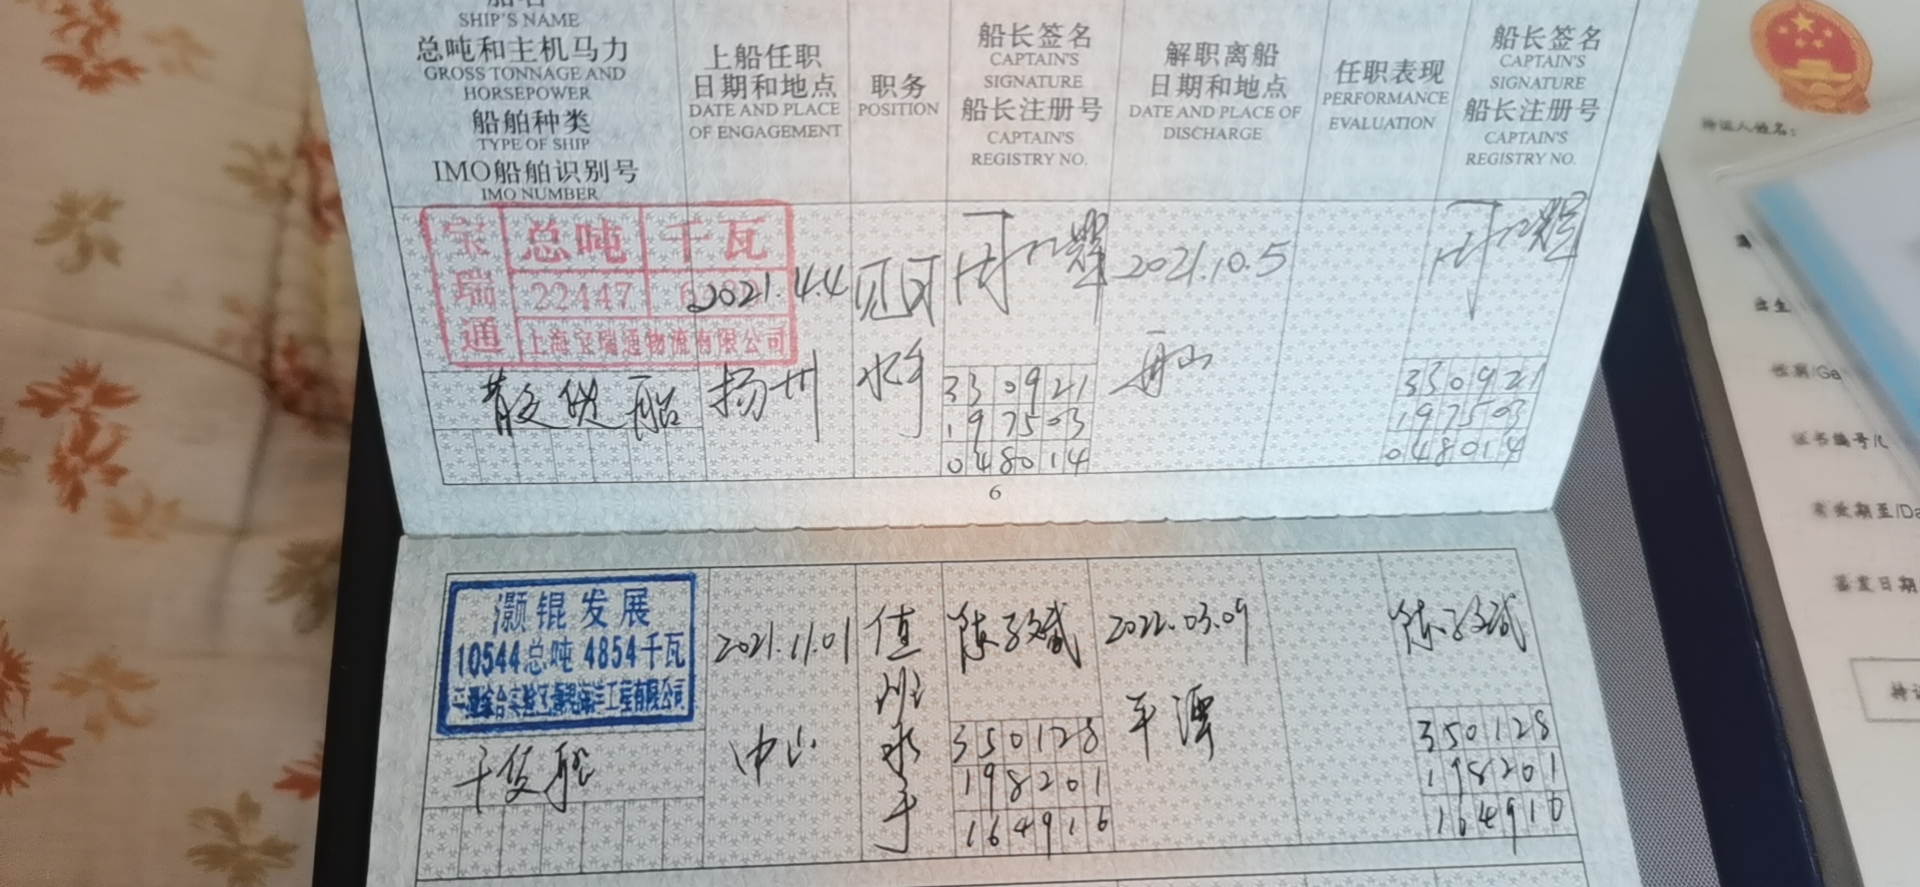 船名
SHIP'S NAME
总吨和主机马力
GROSS TONNAGE AND
HORSEPOWER
船舶种类
TYPE OF SHIP
IMO船舶识别号
IMO NUMBER
上船任职
日期和地点
DATE AND PLACE
OF ENGAGEMENT
职务
POSITION
船长签名
CAPTAIN'S
SIGNATURE
船长注册号
CAPTAIN'S
REGISTRY NO.
解职离船
日期和地点
DATE AND PLACE OF
DISCHARGE
任职表现
PERFORMANCE
EVALUATION
船长签名
CAPTAIN'S
SIGNATURE
船长注册号
CAPTAIN'S
REGISTRY NO.
宝瑞通
总吨 千瓦
22447
上海宝瑞通物流有限公司
散货船
2021.4.4
扬州
见习
水手
330921
197503
048014
2021.10.5
舟山
330921
197503
048014
6
灏锟发展
10544总吨 4854千瓦
平潭综合实验区灏锟海洋工程有限公司
干货船
2021.11.01
中山
值班水手
350128
198201
164916
2022.03.09
平潭
350128
198201
164916
持证人姓名:
出生
性别/Ge
证书编号/
有效期至/Da
签发日期